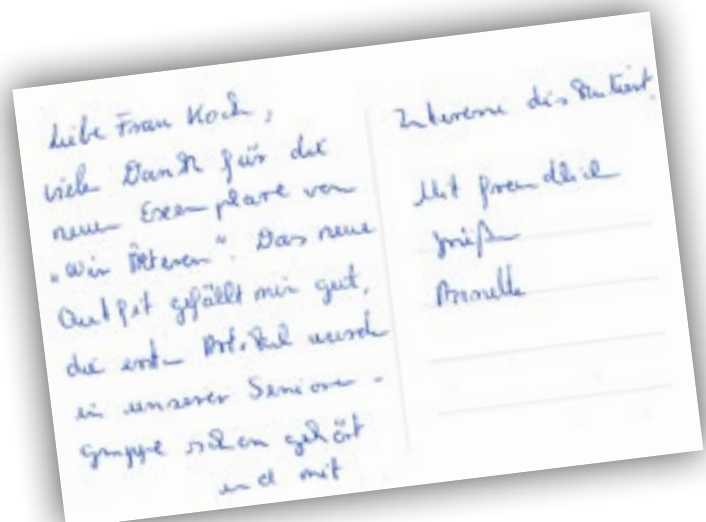 Liebe Frau Koch,
viele Dank für die
neuen Exemplare von
„Wir Älteren“. Das neue
Outfit gefällt mir gut,
die ersten Artikel wurden
in unserer Senioren-
gruppe schon gehört
und mit
Interesse diskutiert.
Mit freundlichen
Grüßen
Annette